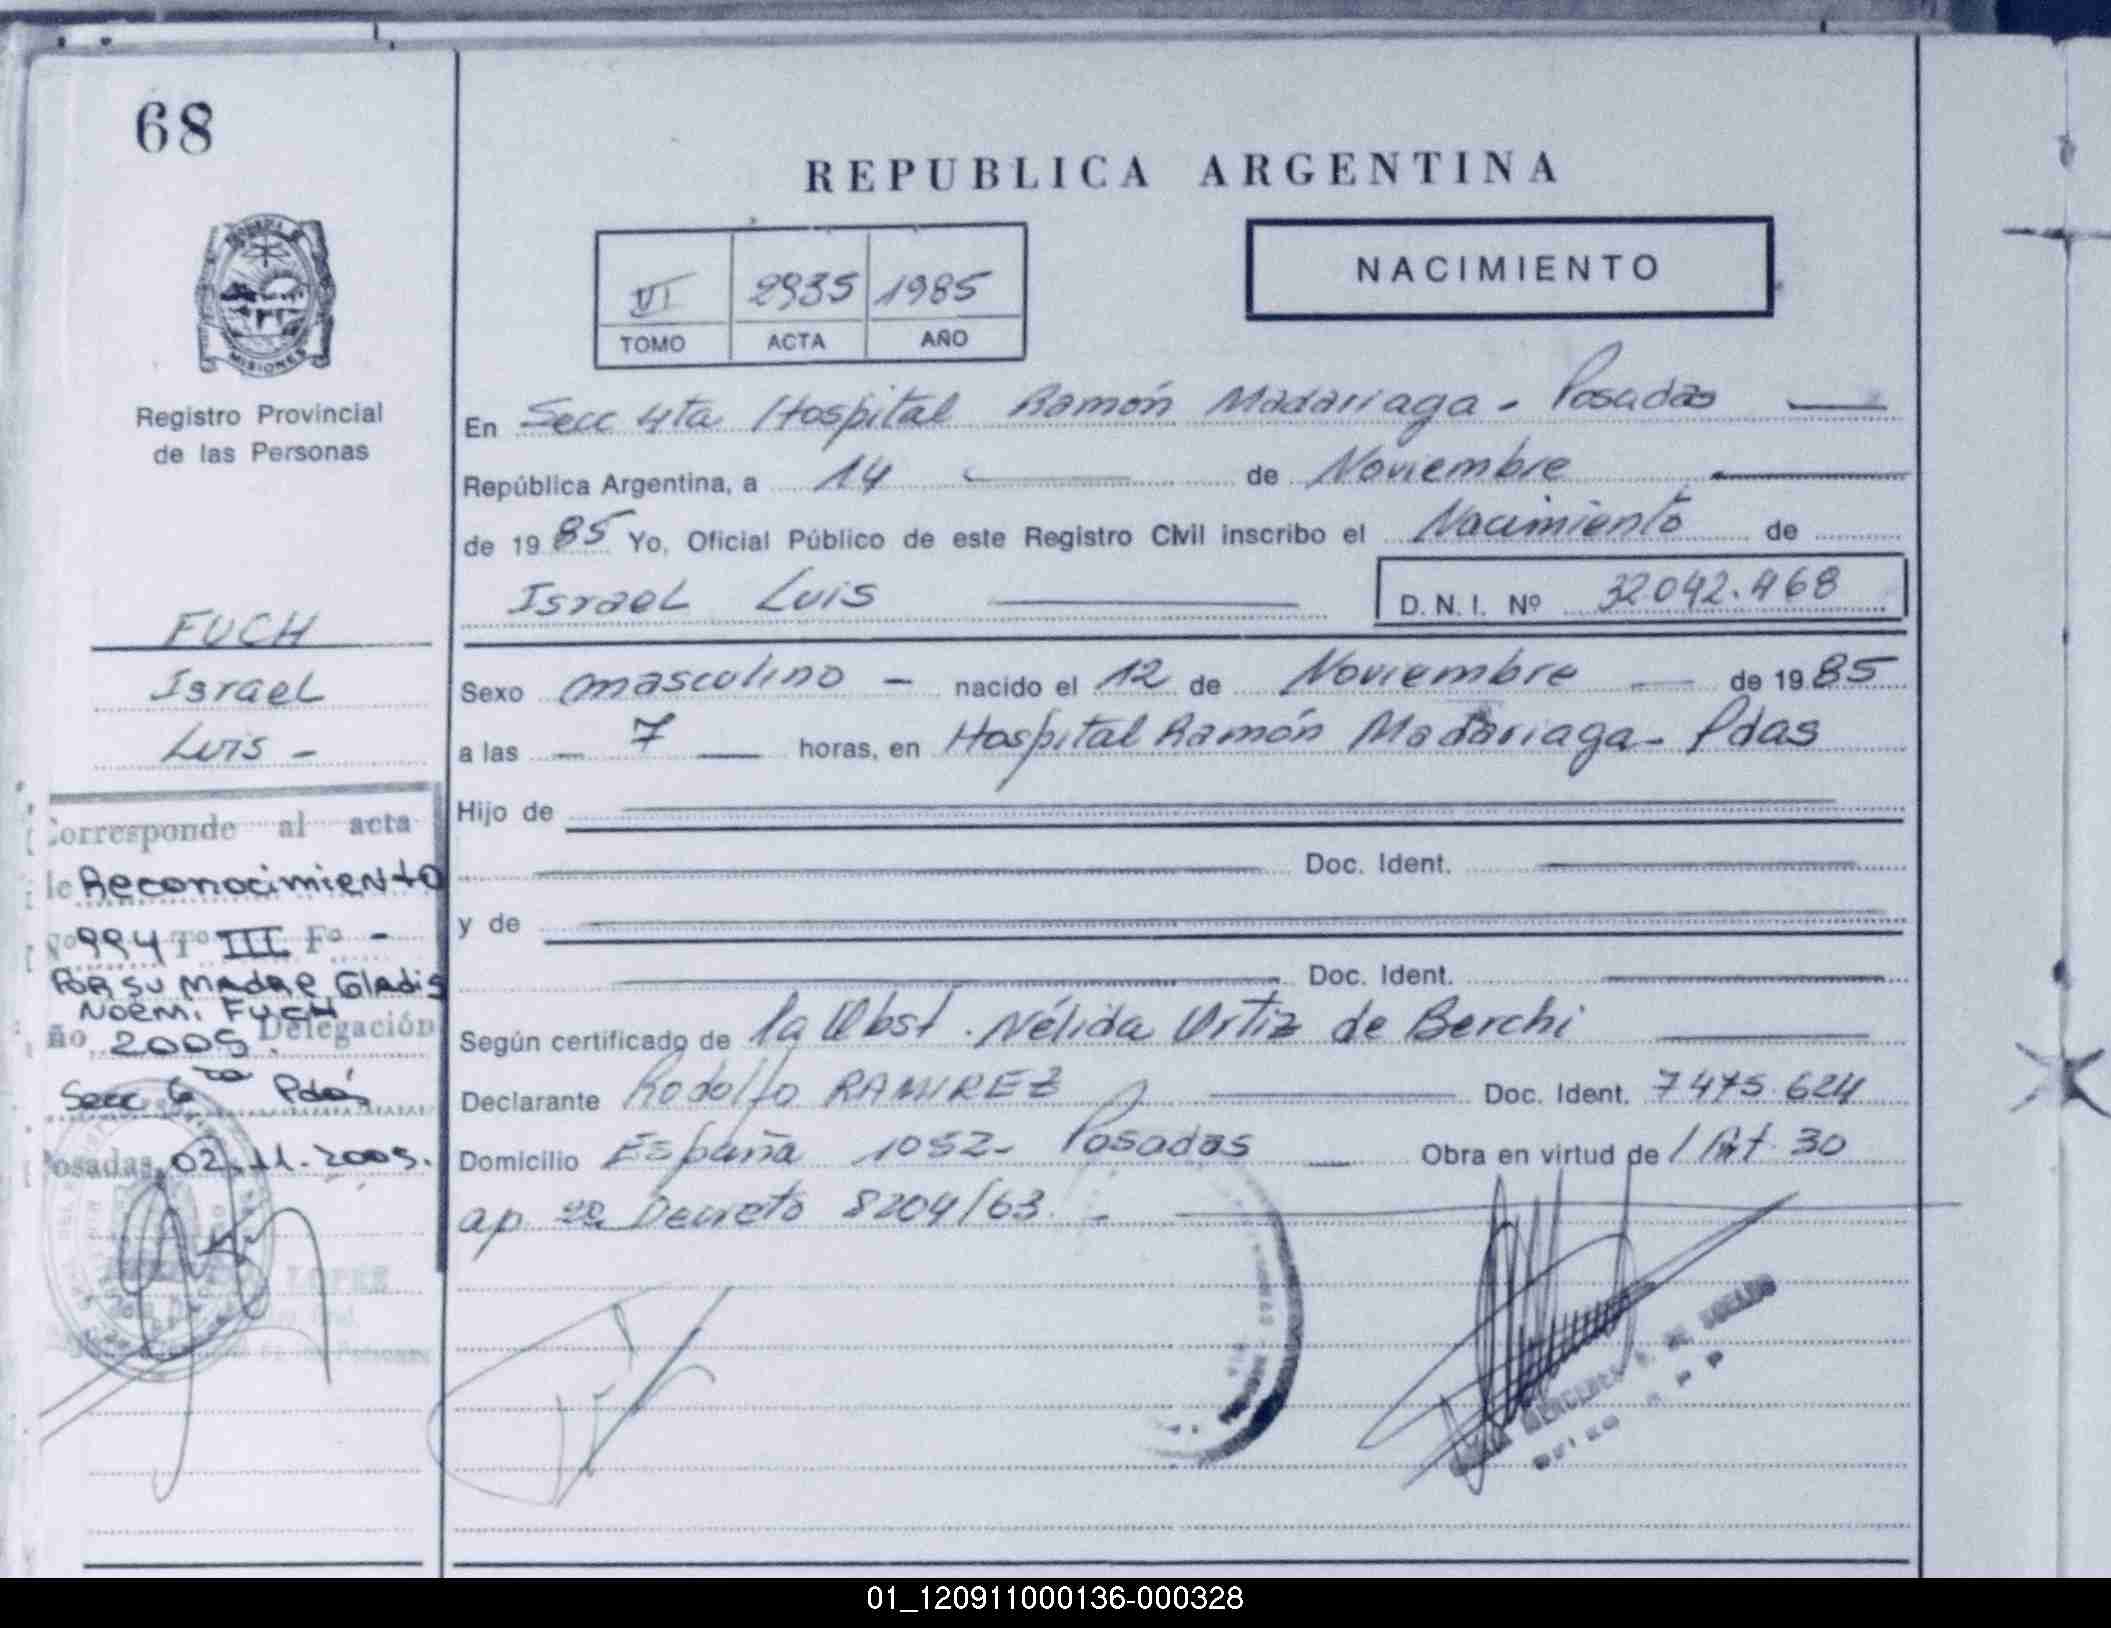 68
REPUBLICA ARGENTINA
NACIMIENTO
VI 2935 1985
TOMO ACTA AÑO
MISIONES
Registro Provincial
de las Personas
FUCH
Israel
Luis -
En Secc 4ta Hospital Ramón Madariaga - Posadas
República Argentina, a 14 de Noviembre
de 1985 Yo, Oficial Público de este Registro Civil inscribo el Nacimiento de
Israel Luis D. N. I. Nº 32042.468
Sexo masculino - nacido el 12 de Noviembre de 1985
a las 7 horas, en Hospital Ramón Madariaga - Pdas
Hijo de
Doc. Ident.
y de
Doc. Ident.
Según certificado de la Obst. Nélida Ortiz de Berchi
Declarante Rodolfo RAMIREZ Doc. Ident. 7475.624
Domicilio España 1052 - Posadas Obra en virtud de / Art 30
ap. 2º Decreto 8204/63. -
Corresponde al acta
de Reconocimiento
Nº 994 Tº III Fº -
POR SU MADRE Gladis
NOEMI FUCH
Año 2005. Delegación
Secc 6ta Pdas
Posadas, 02.11.2005.
LOPEZ
01_120911000136-000328